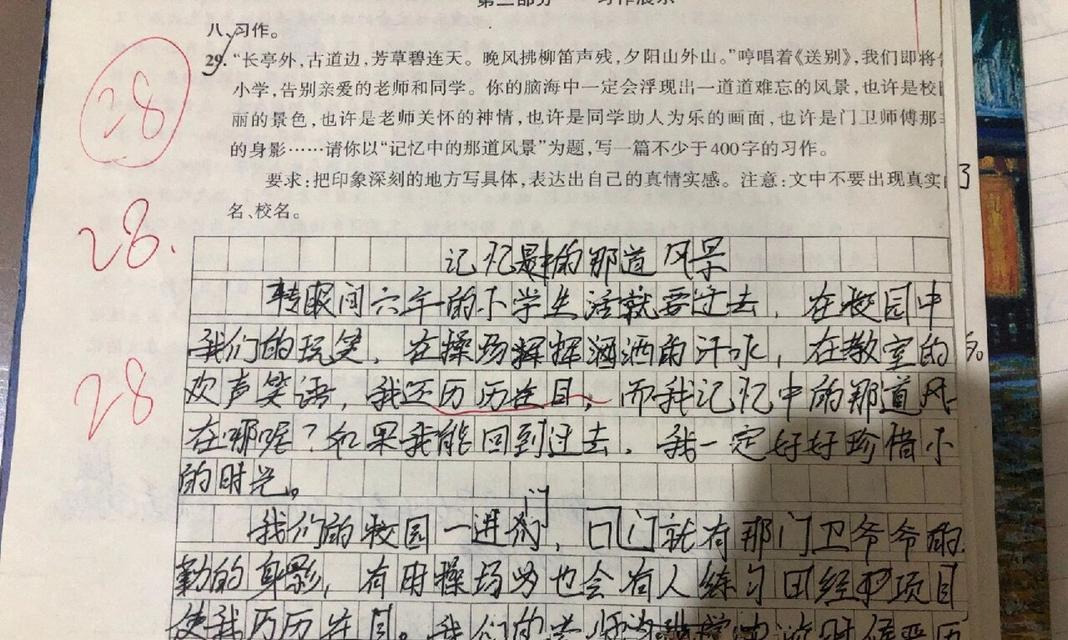 第二部分 习作展示
八、习作。
29. “长亭外，古道边，芳草碧连天。晚风拂柳笛声残，夕阳山外山。”哼唱着《送别》，我们即将
小学，告别亲爱的老师和同学。你的脑海中一定会浮现出一道道难忘的风景，也许是校
丽的景色，也许是老师关怀的神情，也许是同学助人为乐的画面，也许是门卫师傅那
的身影……请你以“记忆中的那道风景”为题，写一篇不少于400字的习作。
要求：把印象深刻的地方写具体，表达出自己的真情实感。注意：文中不要出现真实
名、校名。
28
28.
28
记忆中的那道风景
转眼间六年的小学生活就要过去，在校园中
我们的玩笑，在操场挥洒的汗水，在教室的
欢声笑语，我还历历在目，而我记忆中的那道风
在哪呢？如果我能回到过去，我一定好好珍惜小
的时光。
我们的校园一进门，门口就有那门卫爷爷的
勤的身影，有时操场也会有人练习田径项目
使我历历在目。我们的老师